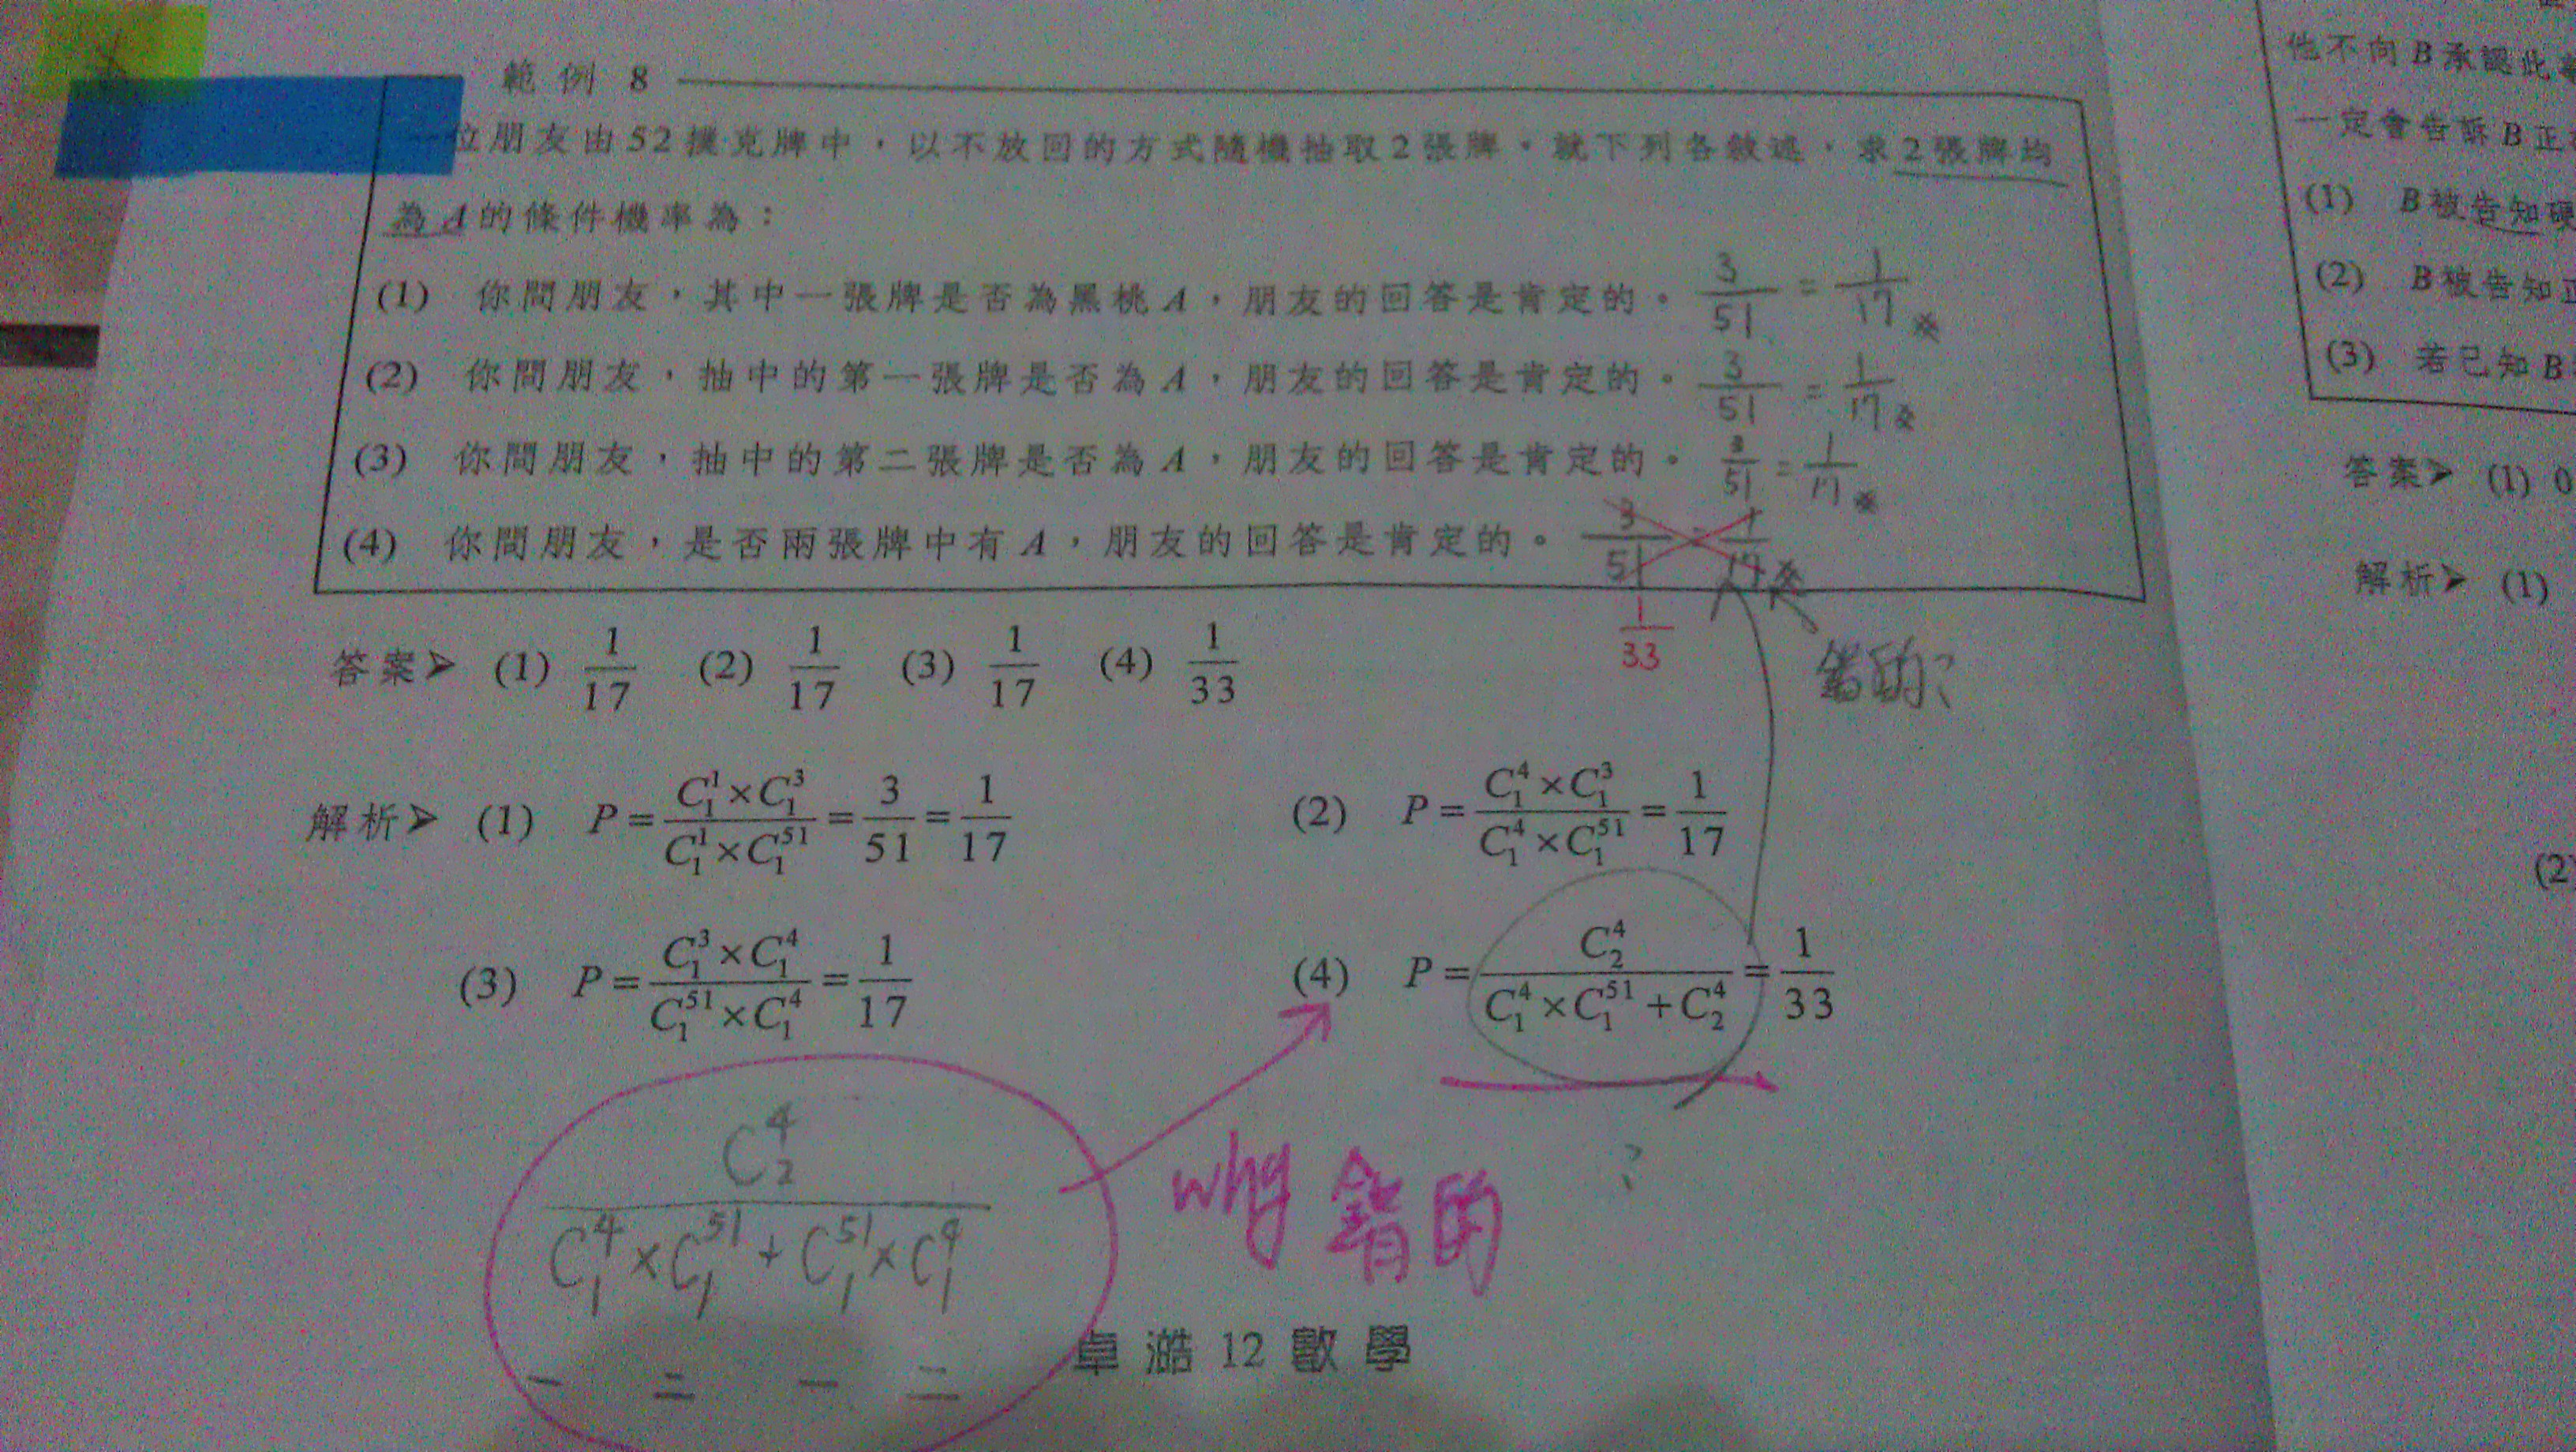 範例 8
一位朋友由52撲克牌中，以不放回的方式隨機抽取2張牌。就下列各敘述，求2張牌均
為A的條件機率為：
(1) 你問朋友，其中一張牌是否為黑桃A，朋友的回答是肯定的。 3/51 = 1/17
(2) 你問朋友，抽中的第一張牌是否為A，朋友的回答是肯定的。 3/51 = 1/17
(3) 你問朋友，抽中的第二張牌是否為A，朋友的回答是肯定的。 3/51 = 1/17
(4) 你問朋友，是否兩張牌中有A，朋友的回答是肯定的。 3/51 = 1/17
1/33
錯的?
答案➤ (1) 1/17 (2) 1/17 (3) 1/17 (4) 1/33
解析➤ (1) P = (C₁¹×C₁³)/(C₁¹×C₁⁵¹) = 3/51 = 1/17 (2) P = (C₁⁴×C₁³)/(C₁⁴×C₁⁵¹) = 1/17
(3) P = (C₁³×C₁⁴)/(C₁⁵¹×C₁⁴) = 1/17 (4) P = C₂⁴/(C₁⁴×C₁⁵¹+C₂⁴) = 1/33
C₂⁴/(C₁⁴×C₁⁵¹+C₁⁵¹×C₁⁴)
why 錯的 ?
一 二 一 二
卓澔12數學
他不向B承認此
一定會告訴B正
(1) B被告知硬
(2) B被告知正
(3) 若已知B
答案➤ (1) 0
解析➤ (1)
(2)